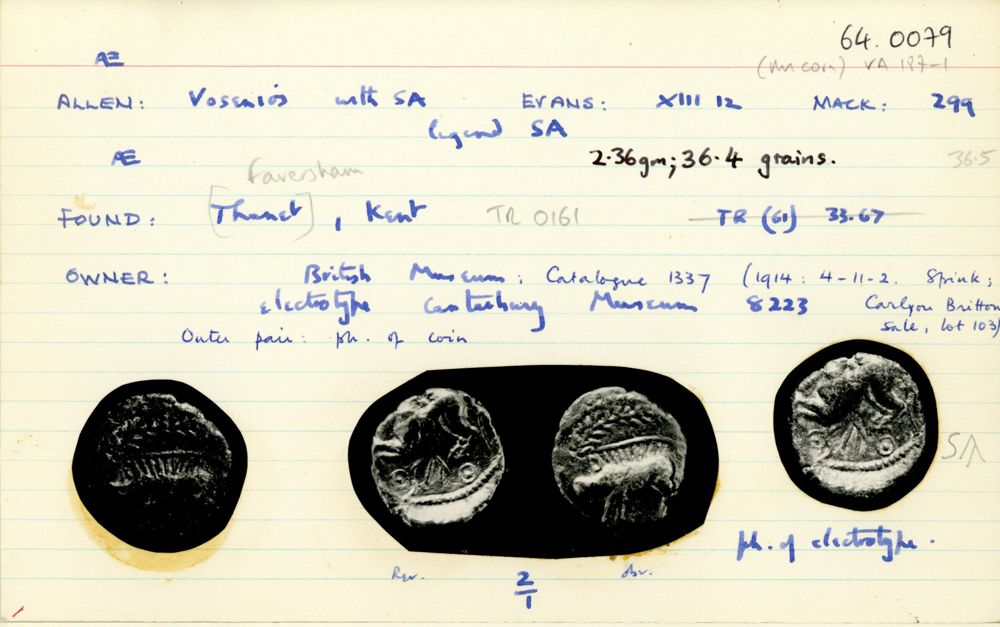 64.0079
Æ (Unicorn) VA 187-1
ALLEN: Vosenios with SA EVANS: XIII 12 MACK: 299
legend SA
Æ 2.36gm; 36.4 grains. 36.5
Faversham
FOUND: [Thanet], Kent TR 0161 TR (61) 33.67
OWNER: British Museum; Catalogue 1337 (1914: 4-11-2. Spink;
electrotype Canterbury Museum 8223 Carlyon Britton
sale, lot 103)
Outer pair: ph. of coin
SA
ph. of electrotype.
Rev. 2/1 obv.